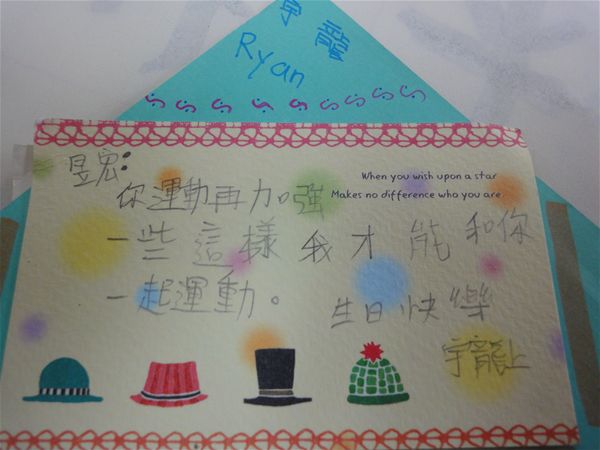 宇龍
Ryan
昱宏:
When you wish upon a star
Makes no difference who you are
你運動再加強
一些這樣我才能和你
一起運動。
生日快樂
宇龍上